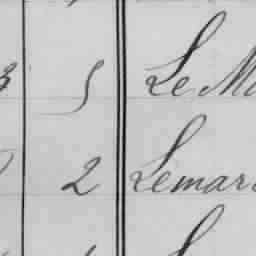 3 5 Le M
2 Lemar